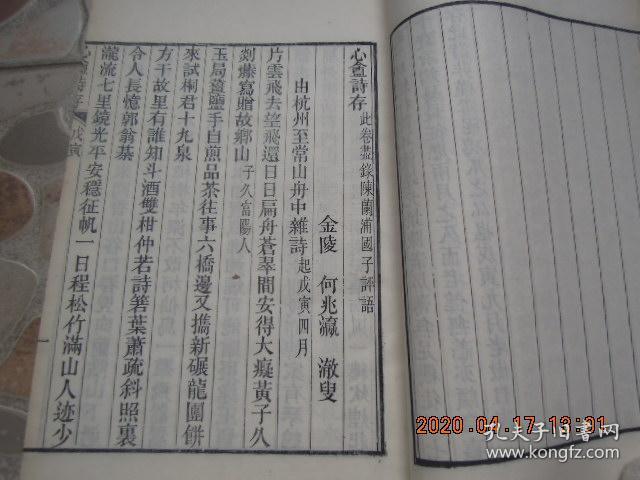 心盦詩存 此卷盡錄陳蘭浦國子評語
金陵 何兆瀛 澈叟
由杭州至常山舟中雜詩 起戊寅四月
片雲飛去望飛還日日扁舟蒼翠間安得大癡黃子久
剡藤寫贈故鄉山 子久富陽人
玉局盞鹽手自煎品茶往事六橋邊又攜新碾龍團餅
來試桐君十九泉
方干故里有誰知斗酒雙柑仲若詩箬葉蕭疏斜照裏
令人長憶郭翁棊
瀧流七里鏡光平安穩征帆一日程松竹滿山人迹少
詩存 戊寅
一
2020.04.17 13:01
孔夫子旧书网
kongfz.com